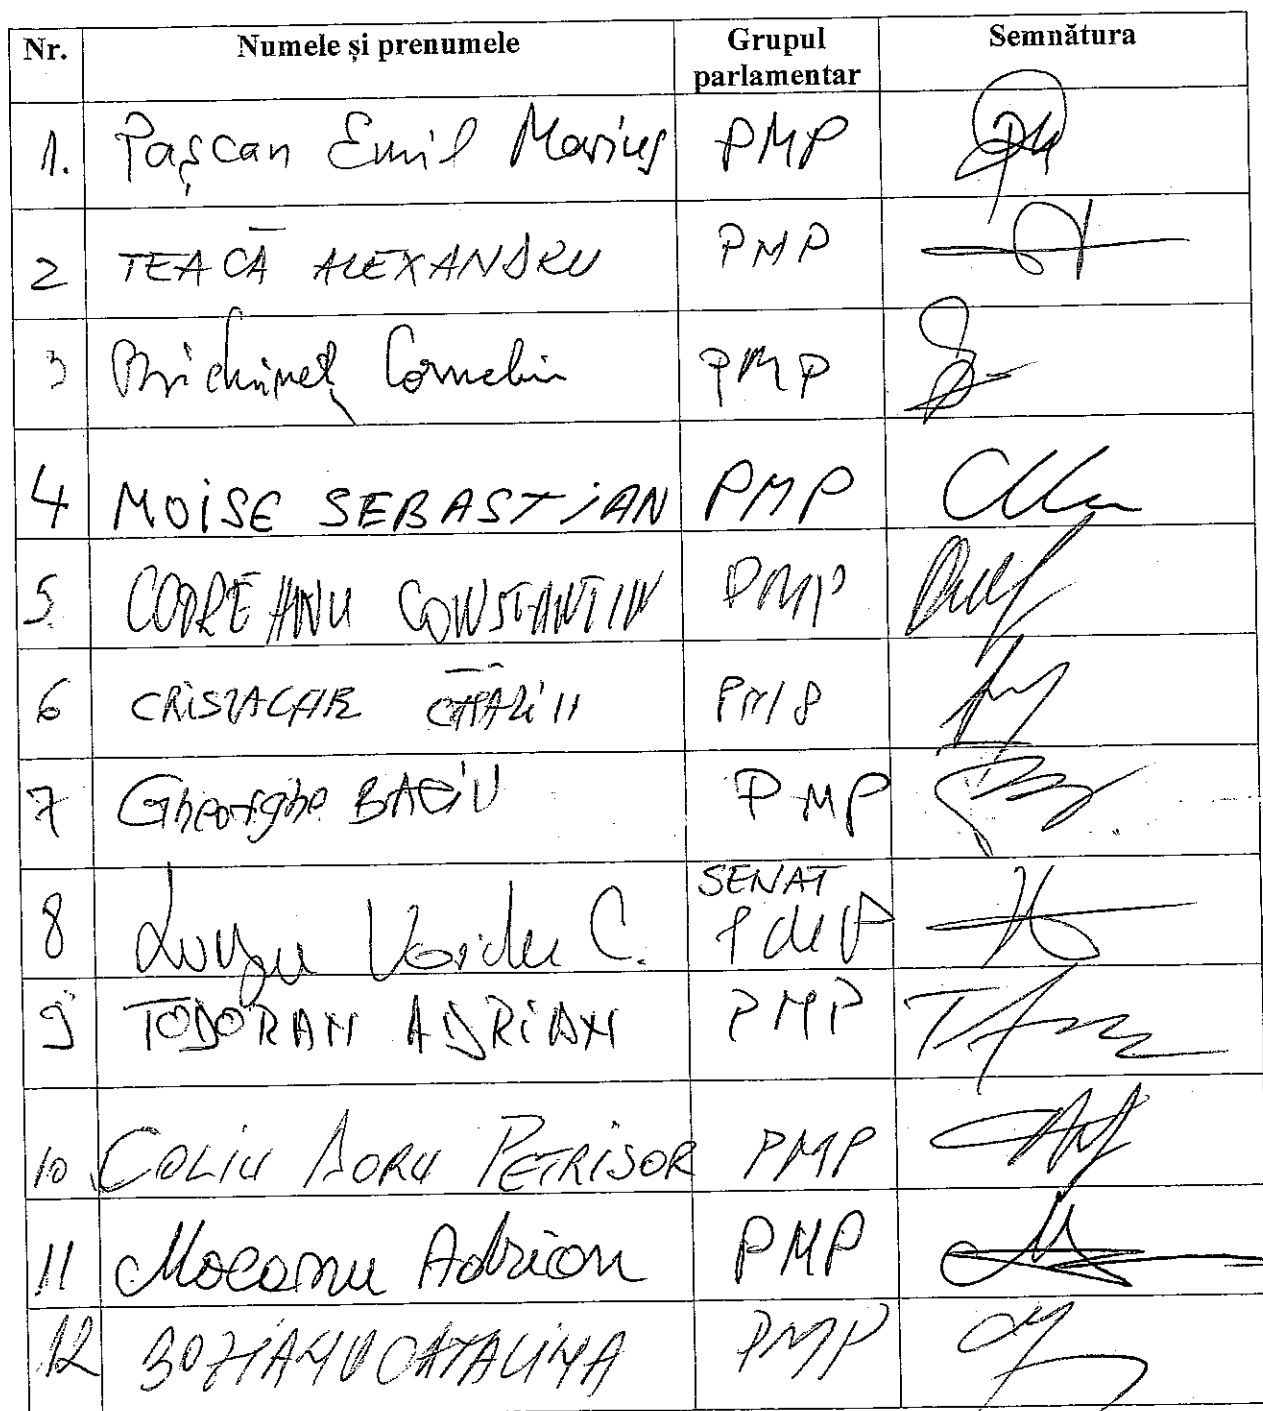 Nr. Numele și prenumele Grupul parlamentar Semnătura
1. Pașcan Emil Marius PMP
2 TEACĂ ALEXANDRU PMP
3 Bichineț Corneliu PMP
4 MOISE SEBASTIAN PMP
5. CODREANU CONSTANTIN PMP
6 CRISTACHE CĂTĂLIN PMP
7 Gheorghe BACIU PMP
8 Lungu Vasile C. SENAT
9 TODORAN ADRIAN PMP
10 COLIU DORU PETRISOR PMP
11 Mocanu Adrian PMP
12 BOZIANU CATALINA PMP